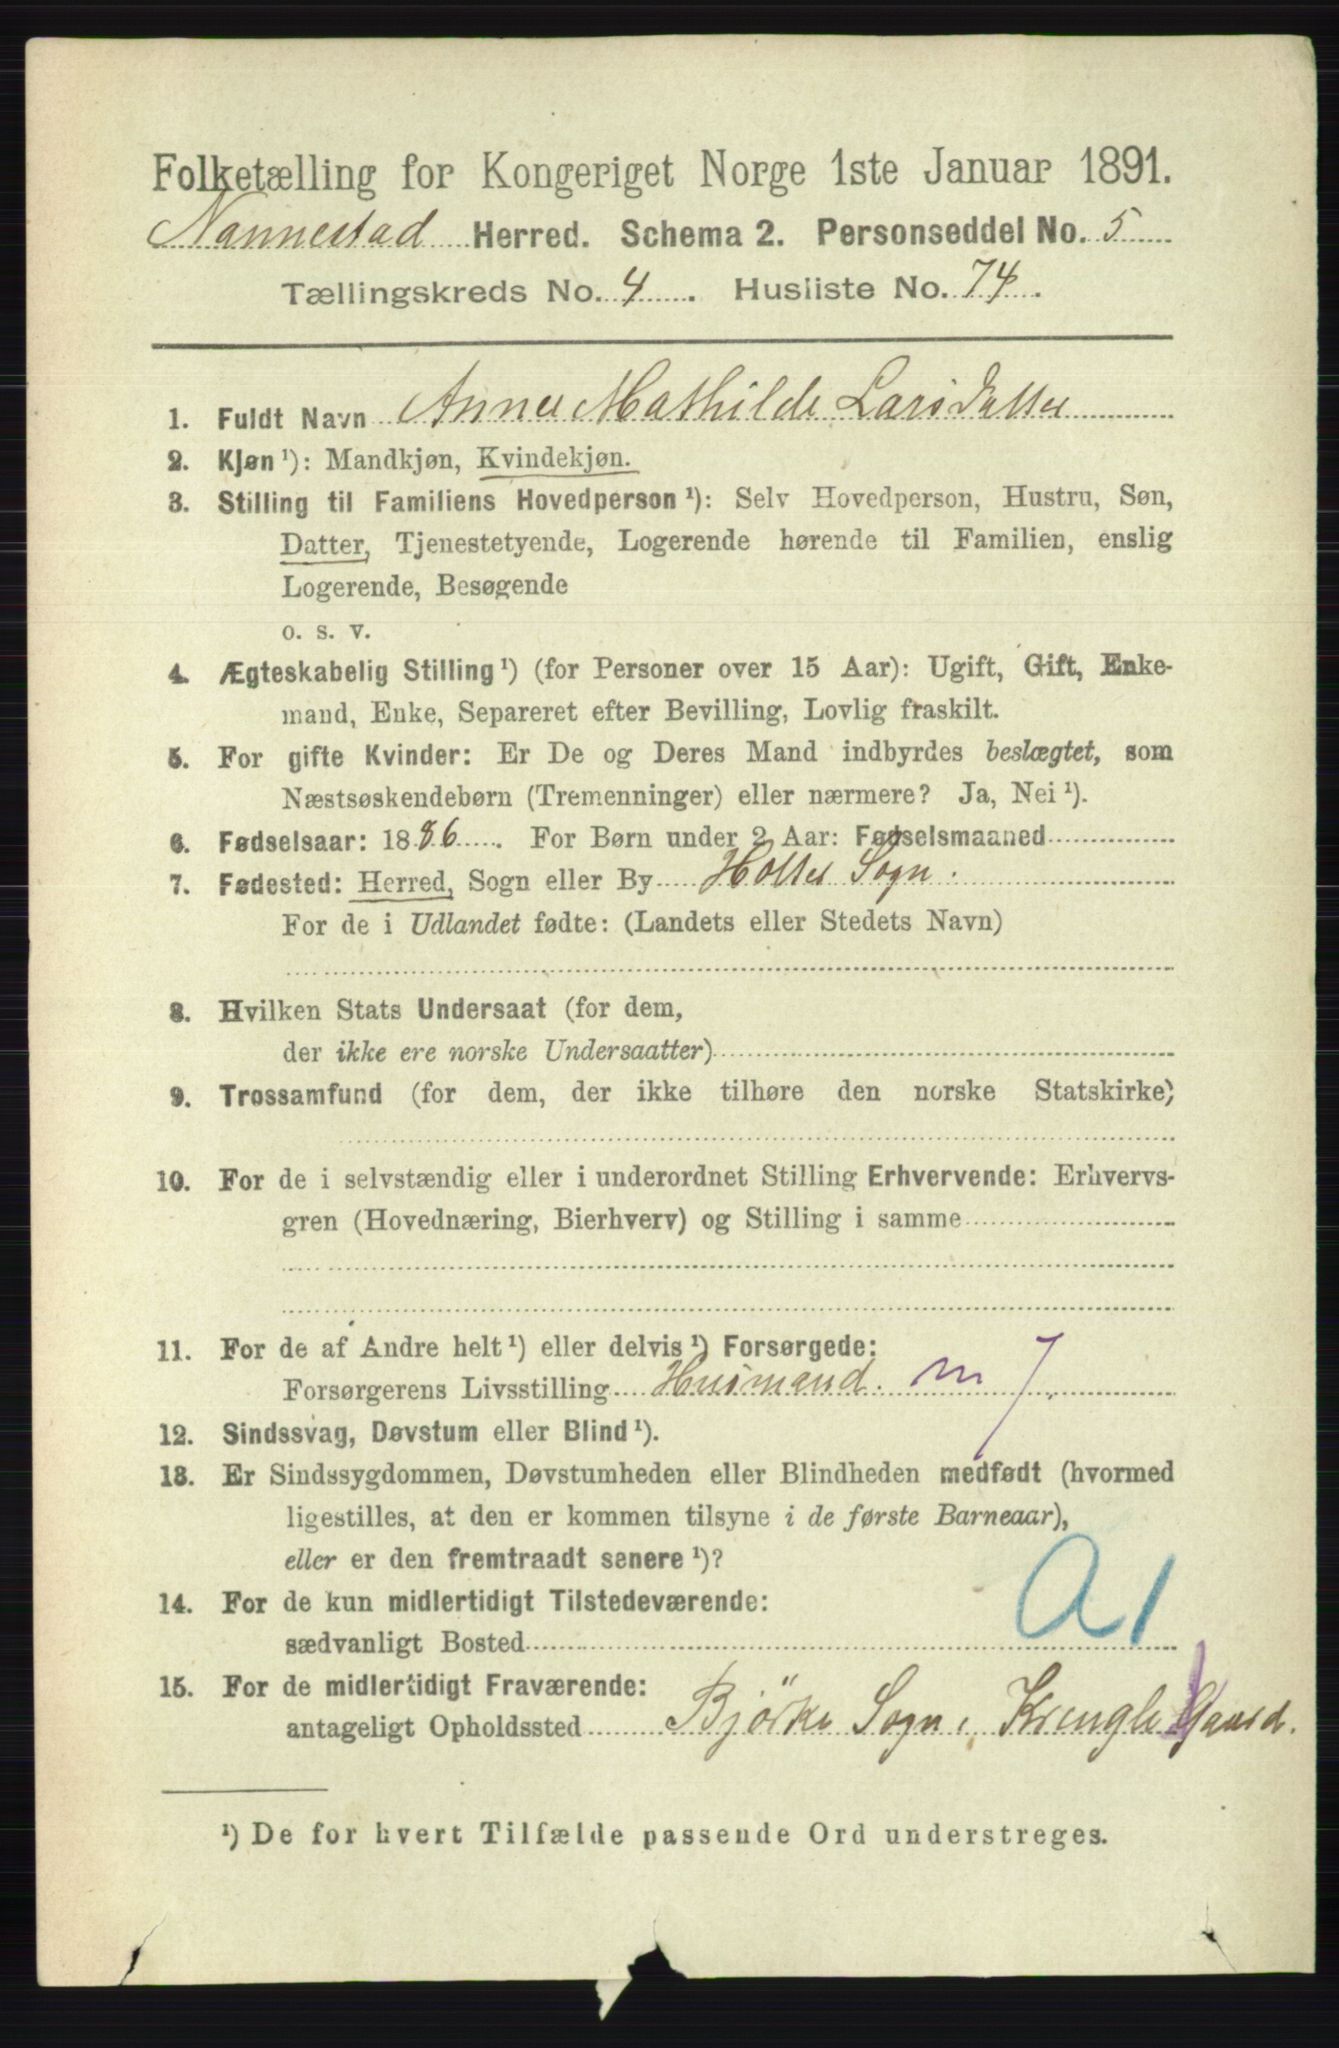 Folketælling for Kongeriget Norge 1ste Januar 1891.
Nannestad Herred. Schema 2. Personseddel No. 5
Tællingskreds No. 4. Husliste No. 74.
1. Fuldt Navn Anne Mathilde Larsdatter
2. Kjøn ¹): Mandkjøn, Kvindekjøn.
3. Stilling til Familiens Hovedperson ¹): Selv Hovedperson, Hustru, Søn,
Datter, Tjenestetyende, Logerende hørende til Familien, enslig
Logerende, Besøgende
o. s. v.
4. Ægteskabelig Stilling ¹) (for Personer over 15 Aar): Ugift, Gift, Enke-
mand, Enke, Separeret efter Bevilling, Lovlig fraskilt.
5. For gifte Kvinder: Er De og Deres Mand indbyrdes beslægtet, som
Næstsøskendebørn (Tremenninger) eller nærmere? Ja, Nei ¹).
6. Fødselsaar: 1886. For Børn under 2 Aar: Fødselsmaaned
7. Fødested: Herred, Sogn eller By Holter Sogn.
For de i Udlandet fødte: (Landets eller Stedets Navn)
8. Hvilken Stats Undersaat (for dem,
der ikke ere norske Undersaatter)
9. Trossamfund (for dem, der ikke tilhøre den norske Statskirke)
10. For de i selvstændig eller i underordnet Stilling Erhvervende: Erhvervs-
gren (Hovednæring, Bierhverv) og Stilling i samme
11. For de af Andre helt ¹) eller delvis ¹) Forsørgede:
Forsørgerens Livsstilling Husmand. m J.
12. Sindssvag, Døvstum eller Blind ¹).
13. Er Sindssygdommen, Døvstumheden eller Blindheden medfødt (hvormed
ligestilles, at den er kommen tilsyne i de første Barneaar),
eller er den fremtraadt senere ¹)?
14. For de kun midlertidigt Tilstedeværende:
sædvanligt Bosted
a1
15. For de midlertidigt Fraværende:
antageligt Opholdssted Bjørke Sogn, Kringle Gaard.
¹) De for hvert Tilfælde passende Ord understreges.